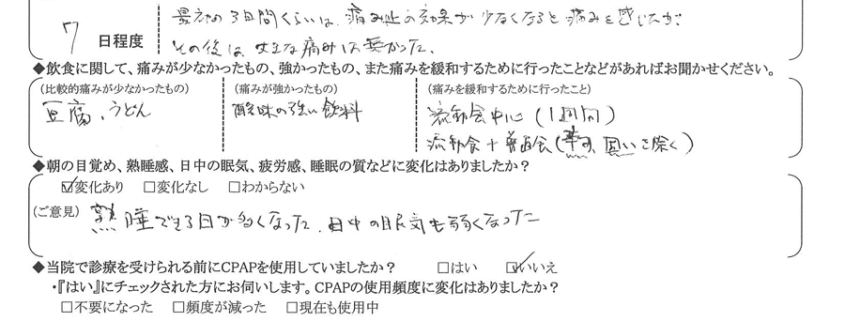 最初の3日間くらいは、痛み止の効果が少なくなると痛みを感じたが
7 日程度 その後は、大きな痛みは無かった。
◆飲食に関して、痛みが少なかったもの、強かったもの、また痛みを緩和するために行ったことなどがあればお聞かせください。
(比較的痛みが少なかったもの) (痛みが強かったもの) (痛みを緩和するために行ったこと)
豆腐、うどん 酸味の強い飲料 流動食中心(1週間)
流動食+普通食(辛い、固いを除く)
◆朝の目覚め、熟睡感、日中の眠気、疲労感、睡眠の質などに変化はありましたか?
☑変化あり □変化なし □わからない
(ご意見) 熟睡できる日が多くなった、日中の眠気も弱くなった
◆当院で診療を受けられる前にCPAPを使用していましたか? □はい ☑いいえ
・『はい』にチェックされた方にお伺いします。CPAPの使用頻度に変化はありましたか?
□不要になった □頻度が減った □現在も使用中